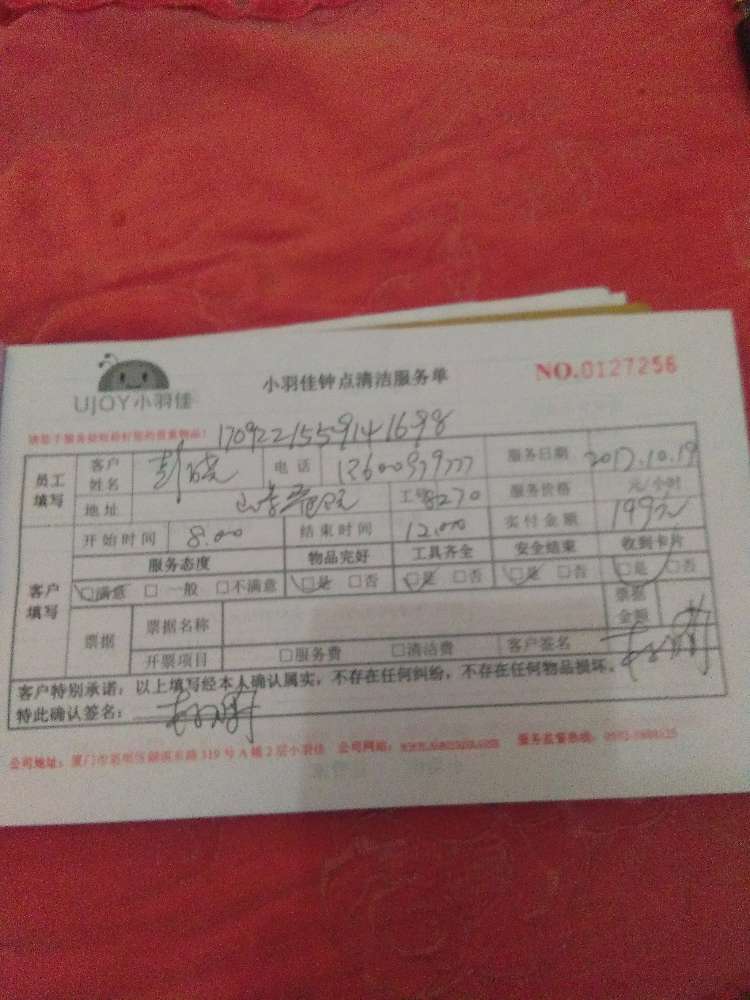 UJOY小羽佳
小羽佳钟点清洁服务单
NO.0127256
请您于服务前 好您的贵重物品!
员工填写 客户姓名 电话 服务日期 2017.10.19
地址 工号 8270 服务价格 元/小时
客户填写 开始时间 8.00 结束时间 12.00 实付金额 199元
服务态度 物品完好 工具齐全 安全结束 收到卡片
□满意 □一般 □不满意 □是 □否 □是 □否 □是 □否 □是 □否
票据 票据名称 票据金额
开票项目 □服务费 □清洁费 客户签名
客户特别承诺：以上填写经本人确认属实，不存在任何纠纷，不存在任何物品损坏。
特此确认签名：
公司地址：厦门市思明区湖滨东路319号A幢2层小羽佳 公司网站： 服务监督热线：